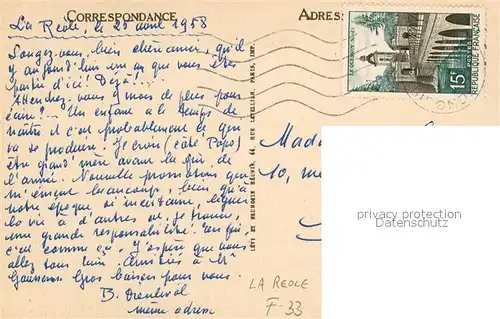 CORRESPONDANCE
ADRES
La Réole, le 25 avril 1958
Songez-vous, bien chère amie, qu'il
y a aujourd'hui un an que vous êtes
partie d'ici! Déjà!...
Attendez-vous 9 mois de plus pour
écrire?... Un enfant a le temps de
naître et c'est probablement ce qui
va se produire. Je crois (côté Popo)
être grand'mère avant la fin de
l'année. Nouvelle promotion qui
m'émeut beaucoup, bien qu'à
notre époque si incertaine, léguer
la vie à d'autres est, je trouve,
une grande responsabilité! Enfin,
c'est comme ça. J'espère que vous
allez tous bien. Amitiés à Mr
Gros baisers pour vous.
B.
même adresse
LÉVY ET NEURDEIN RÉUNIS, 44, RUE LETELLIER, PARIS, IMP.
LE QUESNOY (NORD)
15F
REPUBLIQUE FRANÇAISE
Mada
10,
privacy protection
Datenschutz
LA REOLE
F-33